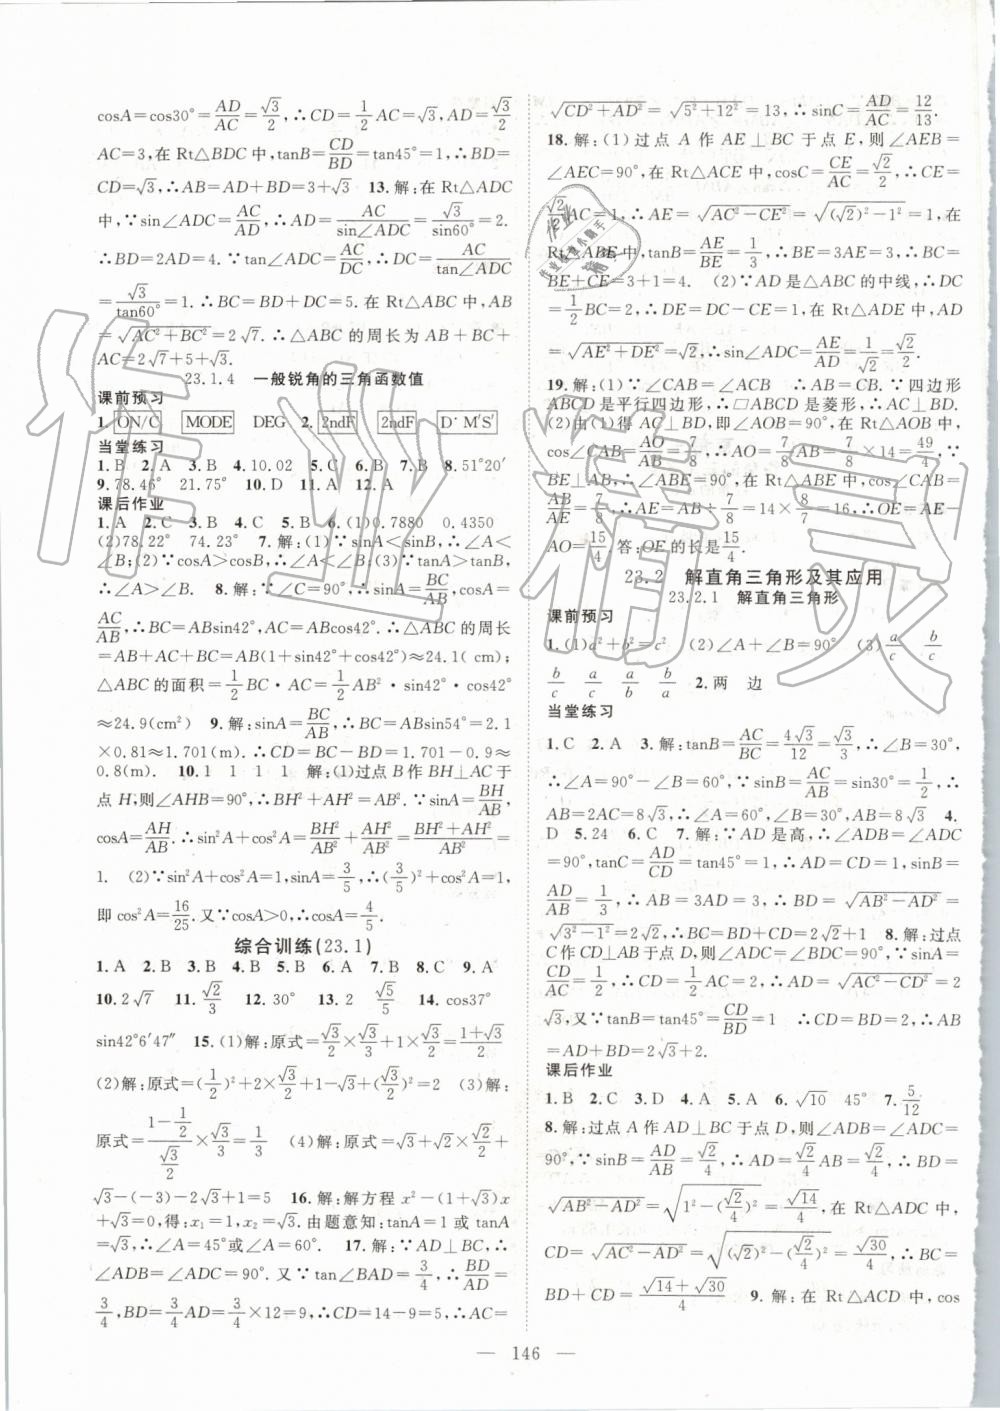 cosA=cos30°=AD/AC=√3/2,∴CD=1/2AC=√3,AD=√3/2
AC=3,在 Rt△BDC 中,tanB=CD/BD=tan45°=1,∴BD=
CD=√3,∴AB=AD+BD=3+√3 13.解:在 Rt△ADC
中,∵sin∠ADC=AC/AD,∴AD=AC/sin∠ADC=√3/sin60°=2.
∴BD=2AD=4.∵tan∠ADC=AC/DC,∴DC=AC/tan∠ADC
=√3/tan60°=1.∴BC=BD+DC=5.在 Rt△ABC 中,AB
=√(AC²+BC²)=2√7.∴△ABC 的周长为 AB+BC+
AC=2√7+5+√3.
23.1.4 一般锐角的三角函数值
课前预习
1.ON/C MODE DEG 2.2ndF 2ndF D·M′S′
当堂练习
1.B 2.A 3.B 4.10.02 5.C 6.B 7.B 8.51°20′
9.78.46° 21.75° 10.D 11.A 12.A
课后作业
1.A 2.C 3.B 4.C 5.B 6.(1)0.7880 0.4350
(2)78.22° 74.23° 7.解:(1)∵sinA<sinB,∴∠A<
∠B(2)∵cosA>cosB,∴∠A<∠B(3)∵tanA>tanB,
∴∠A>∠B. 8.解:∵∠C=90°,∴sinA=BC/AB,cosA=
AC/AB,∴BC=ABsin42°,AC=ABcos42°,∴△ABC 的周长
=AB+AC+BC=AB(1+sin42°+cos42°)≈24.1(cm),
△ABC 的面积=1/2BC·AC=1/2AB²·sin42°·cos42°
≈24.9(cm²) 9.解:sinA=BC/AB,∴BC=ABsin54°=2.1
×0.81≈1.701(m).∴CD=BC-BD=1.701-0.9≈
0.8(m). 10.1 1 1 1 解:(1)过点 B 作 BH⊥AC 于
点 H,则∠AHB=90°,∴BH²+AH²=AB².∵sinA=BH/AB,
cosA=AH/AB.∴sin²A+cos²A=BH²/AB²+AH²/AB²=(BH²+AH²)/AB²=
1. (2)∵sin²A+cos²A=1,sinA=3/5,∴(3/5)²+cos²A=1,
即 cos²A=16/25.又∵cosA>0,∴cosA=4/5.
综合训练(23.1)
1.A 2.B 3.B 4.B 5.B 6.A 7.B 8.C 9.A
10.2√7 11.√2/3 12.30° 13.2 √5/5 14.cos37°
sin42°6′47″ 15.(1)解:原式=√3/2×√3/3+1×√3/2=(1+√3)/2
(2)解:原式=(1/2)²+2×√3/2+1-√3+(√3/2)²=2 (3)解:
原式=(1-1/2)/(√3/2)×√3/3=1/3 (4)解:原式=√3+√2×√2/2+
√3-(-3)-2√3+1=5 16.解:解方程 x²-(1+√3)x
+√3=0,得:x₁=1,x₂=√3.由题意知:tanA=1 或 tanA
=√3,∴∠A=45°或∠A=60°. 17.解:∵AD⊥BC,∴
∠ADB=∠ADC=90°.又∵tan∠BAD=3/4,∴BD/AD=
3/4,BD=3/4AD=3/4×12=9,∴CD=14-9=5,∴AC=
√(CD²+AD²)=√(5²+12²)=13,∴sinC=AD/AC=12/13.
18.解:(1)过点 A 作 AE⊥BC 于点 E,则∠AEB=
∠AEC=90°,在 Rt△AEC 中,cosC=CE/AC=√2/2,∴CE=
√2/2AC=1.∴AE=√(AC²-CE²)=√((√2)²-1²)=1,在
Rt△ABE 中,tanB=AE/BE=1/3,∴BE=3AE=3,∴BC=
BE+CE=3+1=4. (2)∵AD 是△ABC 的中线,∴DC
=1/2BC=2,∴DE=DC-CE=1,在 Rt△ADE 中,AD
=√(AE²+DE²)=√2,∴sin∠ADC=AE/AD=1/√2=√2/2.
19.解:(1)∵∠CAB=∠ACB,∴AB=CB.∵四边形
ABCD 是平行四边形,∴□ABCD 是菱形,∴AC⊥BD.
(2)由(1)得 AC⊥BD,即∠AOB=90°,在 Rt△AOB 中,
cos∠CAB=AO/AB=7/8,∴AO=7/8AB=7/8×14=49/4.∵
BE⊥AB,∴∠ABE=90°,在 Rt△ABE 中,cos∠CAB=
AB/AE=7/8,∴AE=AB÷7/8=14×8/7=16,∴OE=AE-
AO=15/4.答:OE 的长是15/4.
23.2 解直角三角形及其应用
23.2.1 解直角三角形
课前预习
1.(1)a²+b²=c² (2)∠A+∠B=90° (3)a/c b/c
b/c a/c a/b b/a 2.两 边
当堂练习
1.C 2.A 3.解:tanB=AC/BC=4√3/12=√3/3,∴∠B=30°,
∴∠A=90°-∠B=60°,∵sinB=AC/AB=sin30°=1/2,∴
AB=2AC=8√3,∴∠A=60°,∠B=30°,AB=8√3 4.
D 5.24 6.C 7.解:∵AD 是高,∴∠ADB=∠ADC
=90°,tanC=AD/CD=tan45°=1,∴AD=CD=1,sinB=
AD/AB=1/3,∴AB=3AD=3,∴BD=√(AB²-AD²)=
√(3²-1²)=2√2,∴BC=BD+CD=2√2+1 8.解:过点
C 作 CD⊥AB 于点 D,则∠ADC=∠BDC=90°,∵sinA=
CD/AC=1/2,∴CD=1/2AC=2,∴AD=√(AC²-CD²)=2
√3,又∵tanB=tan45°=CD/BD=1 ∴CD=BD=2,∴AB
=AD+BD=2√3+2.
课后作业
1.B 2.C 3.D 4.A 5.A 6.√10 45° 7.5/12
8.解:过点 A 作 AD⊥BC 于点 D,∴∠ADB=∠ADC=
90°,∵sinB=AD/AB=√2/4,∴AD=√2/4AB=√2/4,∴BD=
√(AB²-AD²)=√(1²-(√2/4)²)=√14/4,∵在 Rt△ADC 中,
CD=√(AC²-AD²)=√((√2)²-(√2/4)²)=√30/4,∴BC=
BD+CD=(√14+√30)/4 9.解:在 Rt△ACD 中,cos
— 146 —
作业精灵